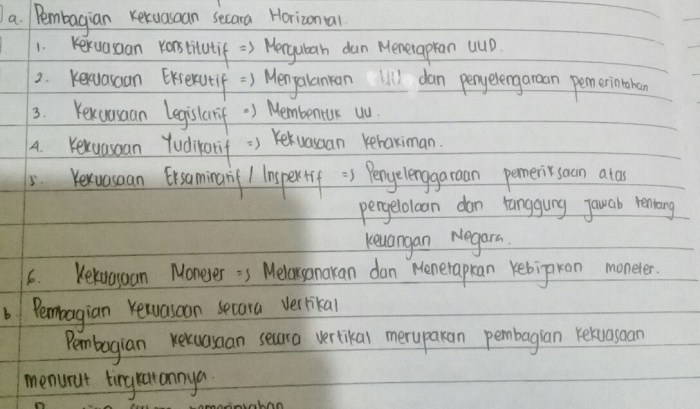 a. Pembagian Kekuasaan secara Horizontal.
1. Kekuasaan Konstitutif => Mengubah dan Menetapkan UUD.
2. Kekuasaan Eksekutif => Menjalankan UU dan penyelengaraan pemerintahan
3. Kekuasaan Legislatif => Membentuk UU.
4. Kekuasaan Yudikatif => Kekuasaan kehakiman.
5. Kekuasaan Eksaminatif / Inspektif => Penyelenggaraan pemeriksaan atas
pengelolaan dan tanggung jawab tentang
keuangan Negara.
6. Kekuasaan Moneter => Melaksanakan dan Menetapkan kebijakan moneter.
b Pembagian kekuasaan secara vertikal
Pembagian kekuasaan secara vertikal merupakan pembagian kekuasaan
menurut tingkatannya.